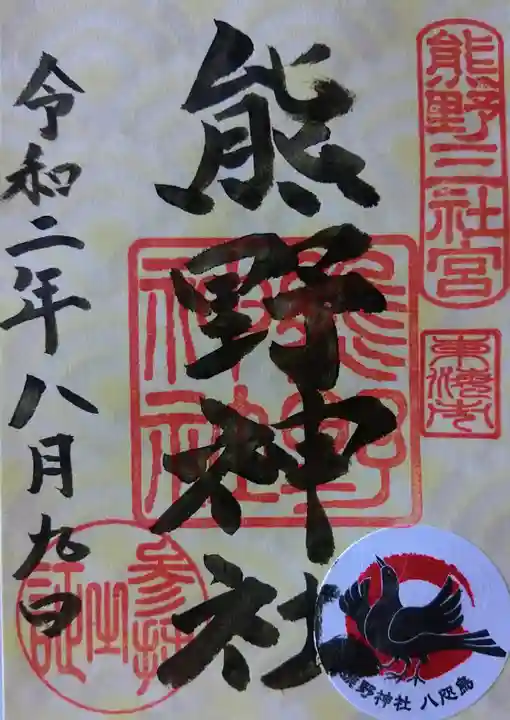 熊野三社宮
東海市
熊野神社
熊野神社
参拝之証
令和二年八月九日
熊野神社 八咫烏